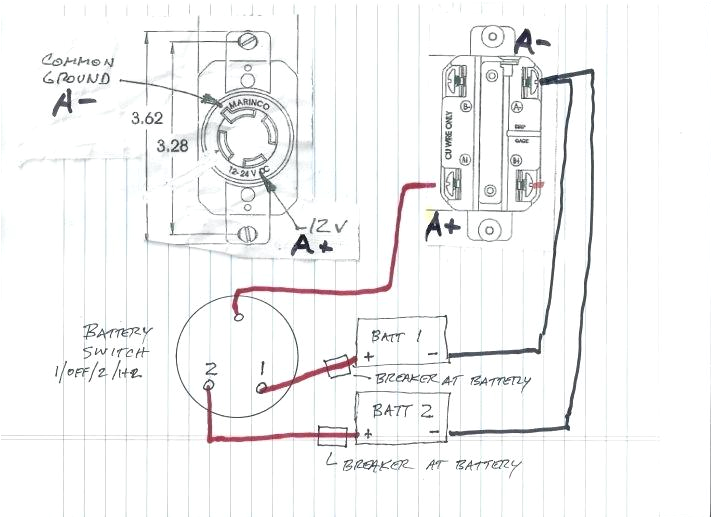 COMMON
GROUND
A-
3.62
3.28
MARINCO
12-24 V DC
-12V
A+
A-
CU WIRE ONLY
A+
BATTERY
SWITCH
1/OFF/2/1+2
2
1
BATT 1
+ -
BREAKER AT BATTERY
BATT 2
+ -
BREAKER AT BATTERY